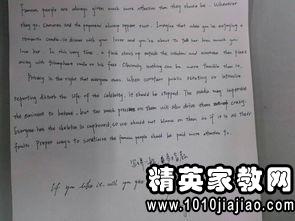 Famous people are always given much more attention than they should be. Whenever
they go, Cameras and the reporters always appear near. Imagine that while you're enjoying a
romantic candle-lit dinner with your lover and you're about to tell her how much you
love her. In this very time, a flash
away with triumphant smile on his face. Obviously nothing can be more terrible than
Privacy is the right that everyone owns. When constant public
reporting disturb the life of the celebrity, it should be stopped. The media may supervise
the dominant to behave, but too much pressure on them will also drive them crazy.
Everyone has the skeleton in cupboard, so we should not blame on them as if it is all their
faults. Proper ways to scrutinize the famous people should be paid more attention to.
If you like it, will you
精英家教网
www.1010jiajiao.com